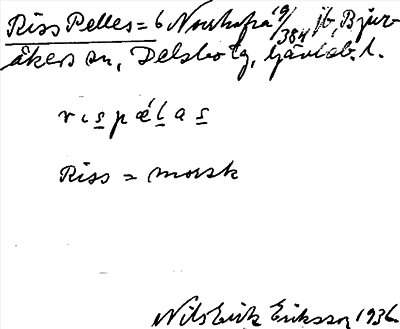 Riss Pelles = 6 Norrhafrå 9/384 jb, Bjur-
åkers sn, Delsbo tg, Gävleb. l.
rɩspǽlas
Riss = morsk
Nils Erik Eriksson 1936.